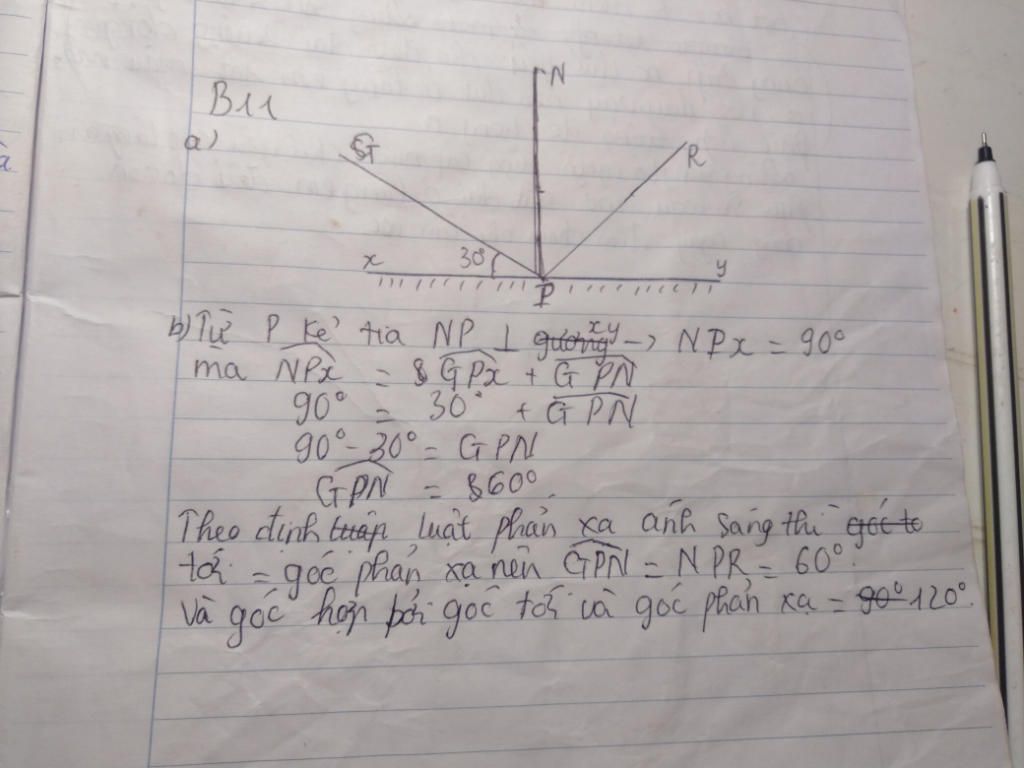 B11
a)
G
N
R
x
30°
y
P
b) Từ P kẻ tia NP ⊥ gương xy -> NPx = 90°
mà NPx = GPx + GPN
90° = 30° + GPN
90° - 30° = GPN
GPN = 60°.
Theo định luật phản xạ ánh sáng thì góc to
tới = góc phản xạ nên GPN = NPR = 60°.
Và góc hợp bởi góc tới và góc phản xạ = 90° 120°.